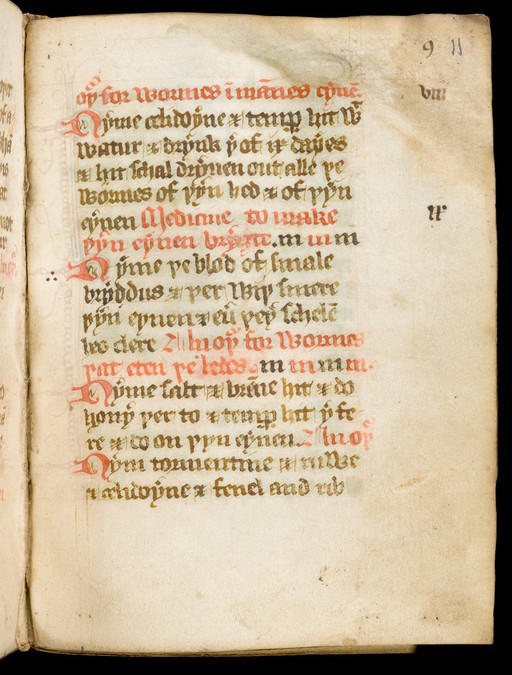 9 11
oyr for wormes ī mānes eyne
viii
Nyme celidoyne & temp hit wt
watur & drynk þ of ix dayes
& hit schal dryuen out alle þe
wormes of þyn hed & of þyn
eynen Medicine to make
þyn eynen bryȝte
ix
Nyme þe blod of smale
bryddus & þer wiþ smere
þyn eynen & eu þey schelē
beo clere An oyr for wormes
þat eten þe ledes
Nyme salt & brēne hit & do
hony þer to & temp hit y fe
re & do on þyn eynen An oyr
Nym tormentine & ruwe
& celidoyne & fenel and rib